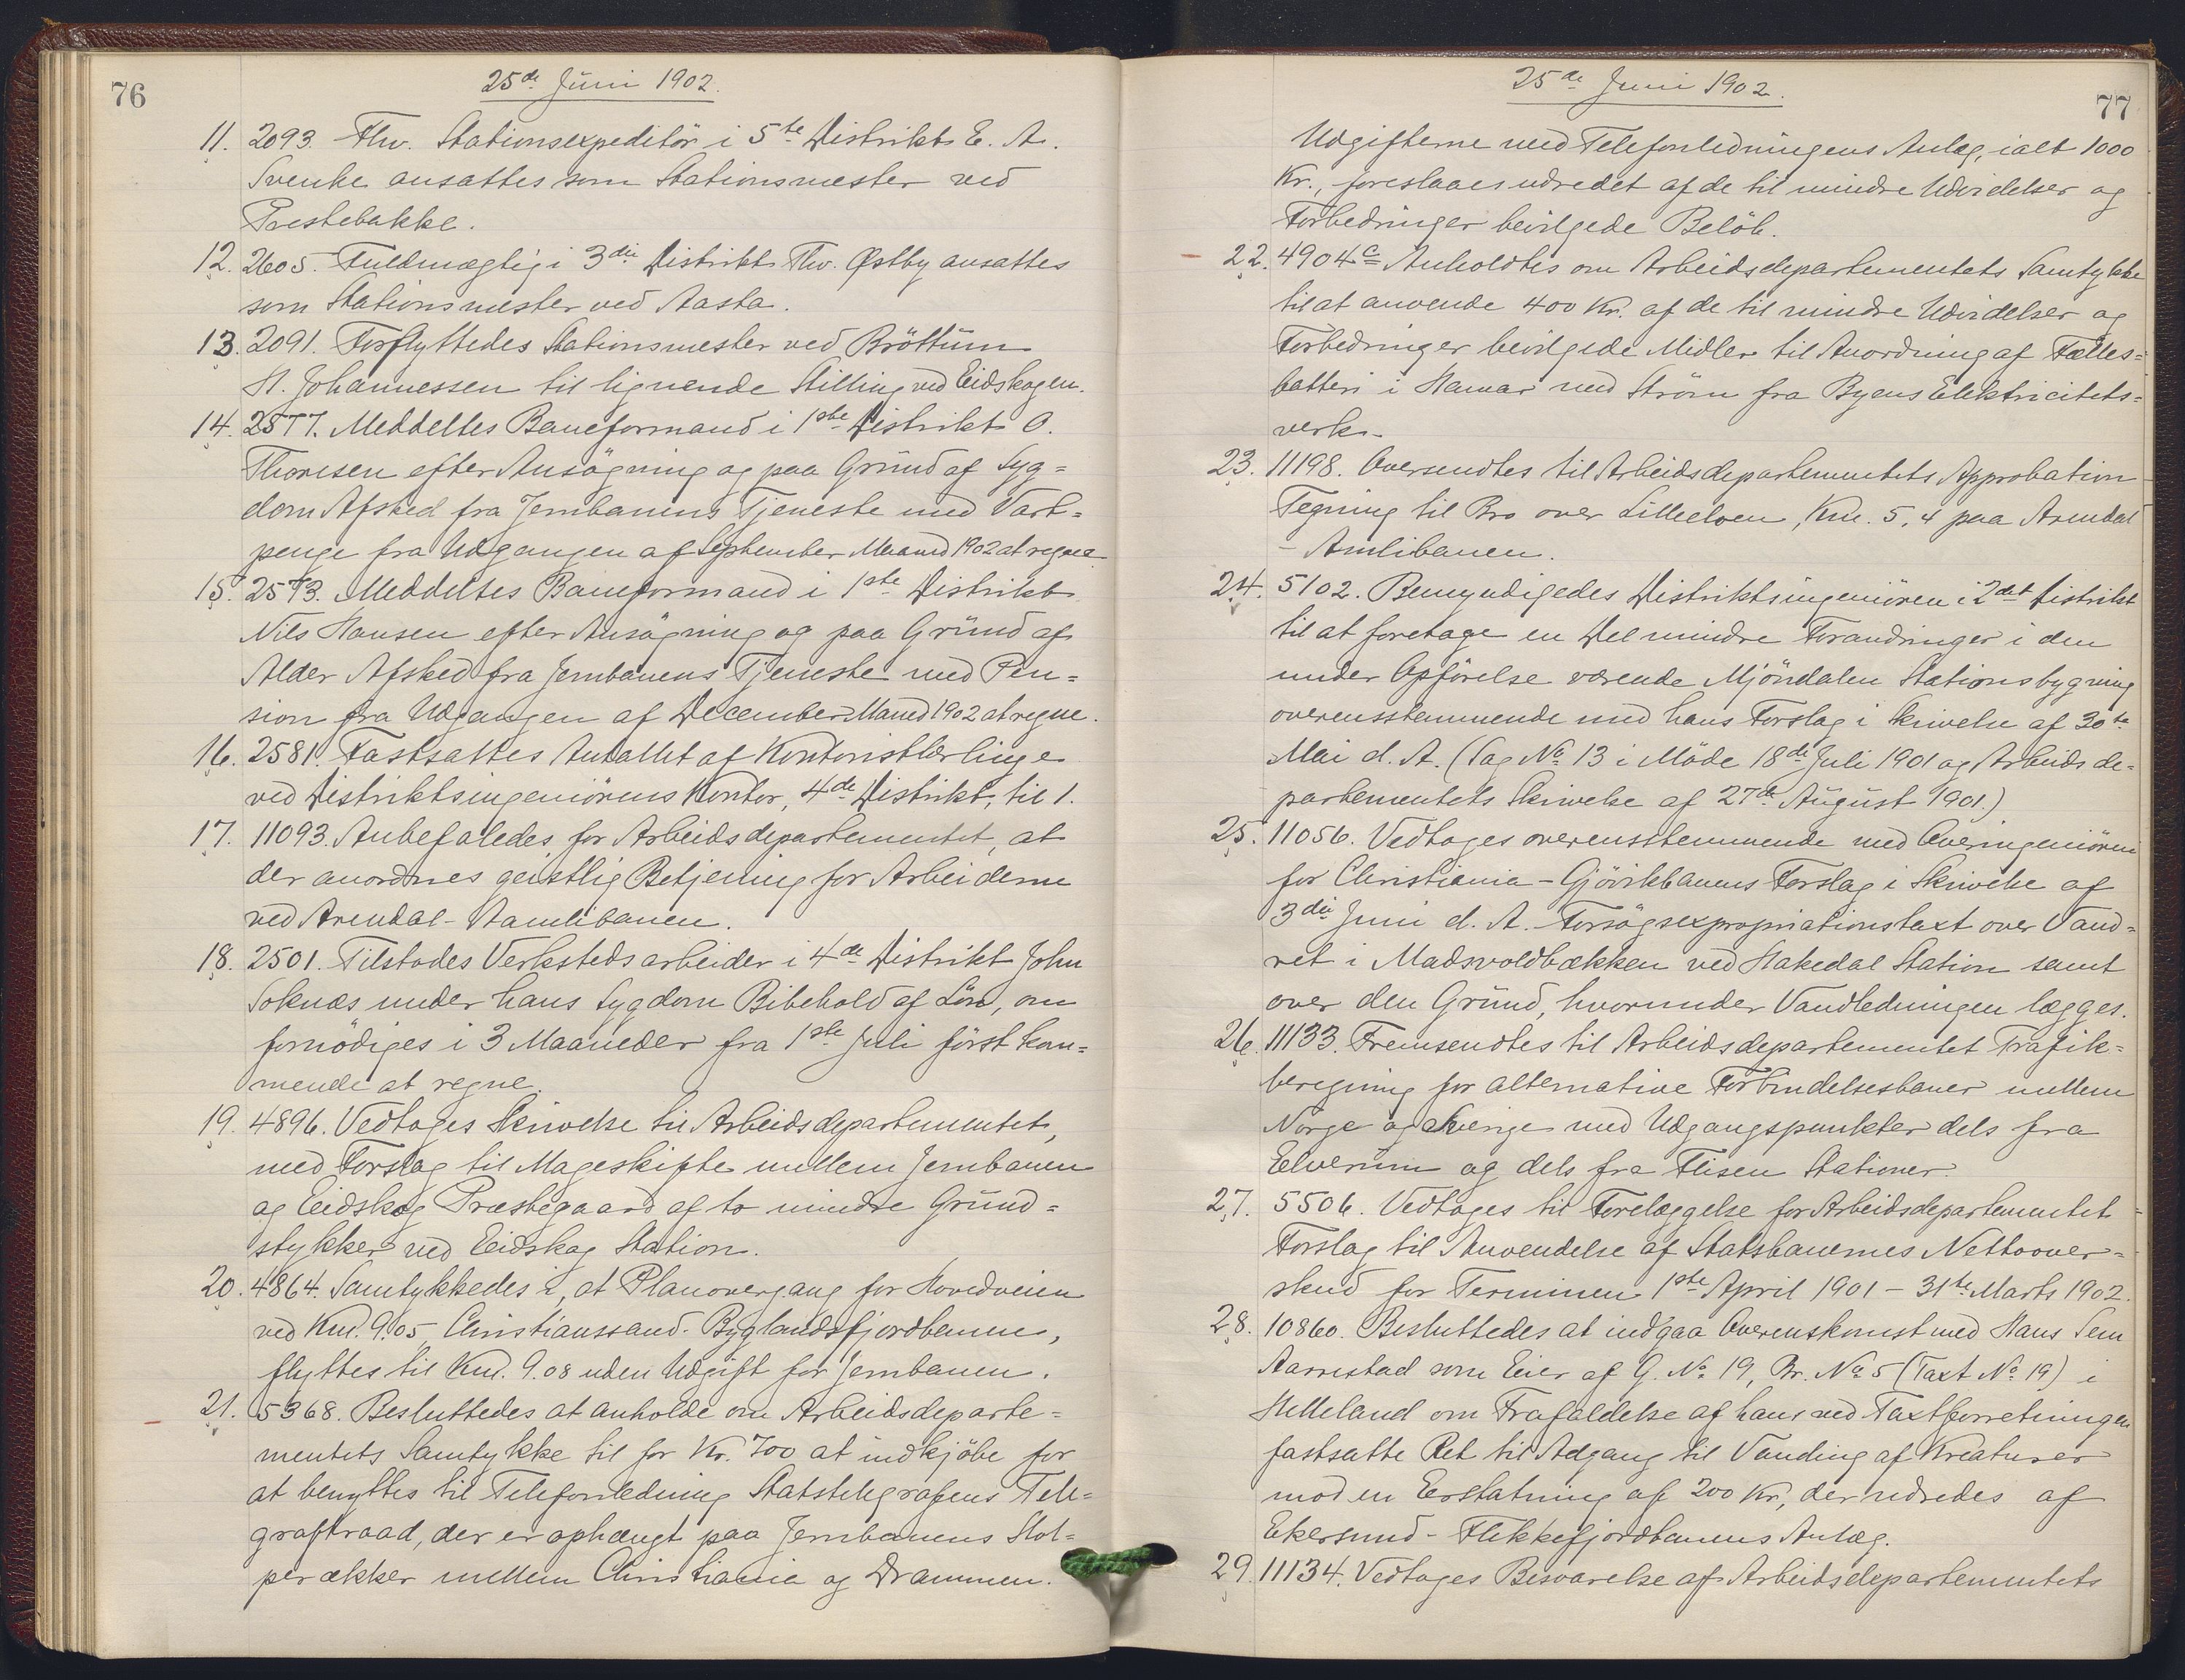 76
25de Juni 1902.
11. 2093. Thv. Stationsexpeditör i 5te Distrikt E. A.
Svenke ansattes som Stationsmester ved
Prestebakke.
12. 2605. Fuldmægtig i 3die Distrikt Thv. Østby ansattes
som Stationsmester ved Aasta.
13. 2091. Forflyttedes Stationsmester ved Bröttum
H. Johannessen til lignende Stilling ved Eidskogen.
14. 2577. Meddeltes Baneformand i 1ste Distrikt O.
Thoresen efter Ansøgning og paa Grund af Syg=
dom Afsked fra Jernbanens Tjeneste med Vart=
penge fra Udgangen af September Maaned 1902 at regne
15. 2573. Meddeltes Baneformand i 1ste Distrikt
Nils Hansen efter Ansøgning og paa Grund af
Alder Afsked fra Jernbanens Tjeneste med Pen=
sion fra Udgangen af December Maaned 1902 at regne.
16. 2581. Fastsattes Antallet af Kontoristlærlinge
ved Distriktsingeniörens Kontor, 4de Distrikt, til 1.
17. 11093. Anbefaledes for Arbeidsdepartementet, at
der anordnes geistlig Betjening for Arbeiderne
ved Arendal-Aamlibanen.
18. 2501. Tilstodes Verkstedsarbeider i 4de Distrikt John
Soknæs under hans Sygdom Bibehold af Lön, om
fornödiges i 3 Maaneder fra 1ste Juli först kom=
mende at regne.
19. 4896. Vedtoges Skrivelse til Arbeidsdepartementet,
med Forslag til Mageskifte mellem Jernbanen
og Eidskog Præstegaard af to mindre Grund=
stykker ved Eidskog Station.
20. 4864. Samtykkedes i, at Planovergang for Hovedveien
ved Km. 9.05 Christianssand-Byglandsfjordbanen,
flyttes til Km. 9.08 uden Udgift for Jernbanen.
21. 5368. Besluttedes at anholde om Arbeidsdeparte=
mentets Samtykke til for Kr. 700 at indkjöbe for
at benyttes til Telefonledning Statstelegrafens Tele=
graftraad, der er ophængt paa Jernbanens Stol=
perækker mellem Christiania og Drammen.
25de Juni 1902.
77
Udgifterne med Telefonledningens Anlæg, ialt 1000
Kr., foreslaaes udredet af de til mindre Udvidelser og
Forbedringer bevilgede Belöb.
22. 4904c Anholdtes om Arbeidsdepartementets Samtykke
til at anvende 400 Kr. af de til mindre Udvidelser og
Forbedringer bevilgede Midler til Anordning af Fælles=
batteri i Hamar med Ström fra Byens Elektricitets=
verk.
23. 11198. Oversendtes til Arbeidsdepartementets Approbation
Tegning til Bro over Lilleelven, Km. 5,4 paa Arendal
- Amlibanen.
24. 5102. Bemyndigedes Distriktsingeniören i 2det Distrikt
til at foretage en Del mindre Forandringer i den
under Opförelse værende Mjöndalen Stationsbygning
overensstemmende med hans Forslag i Skrivelse af 30te
Mai d. A. (Sag No 13 i Möde 18de Juli 1901 og Arbeidsde=
partementets Skrivelse af 27de August 1901.)
25. 11056. Vedtoges overensstemmende med Overingeniören
for Christiania-Gjövikbanens Forslag i Skrivelse af
3die Juni d. A. Forsögsexpropriationstaxt over Vand=
ret i Madsvoldbækken ved Hakedal Station samt
over den Grund, hvorunder Vandledningen lægges.
26. 11133. Fremsendtes til Arbeidsdepartementet Trafik=
beregning for alternative Forbindelsesbaner mellem
Norge og Sverige med Udgangspunkter dels fra
Elverum og dels fra Flisen Stationer.
27. 5506. Vedtoges til Forelæggelse for Arbeidsdepartementet
Forslag til Anvendelse af Statsbanernes Nettoover=
skud for Terminen 1ste April 1901 - 31te Marts 1902.
28. 10860. Besluttedes at indgaa Overenskomst med Hans Sem
Aarrestad som Eier af G. No 19, Br. No 5 (Taxt No 19) i
Helleland om Frafaldelse af hans ved Taxtforretningen
fastsatte Ret til Adgang til Vanding af Kreaturer
mod en Erstatning af 200 Kr., der udredes af
Ekersund-Flekkefjordbanens Anlæg.
29. 11134. Vedtoges Besvarelse af Arbeidsdepartementets